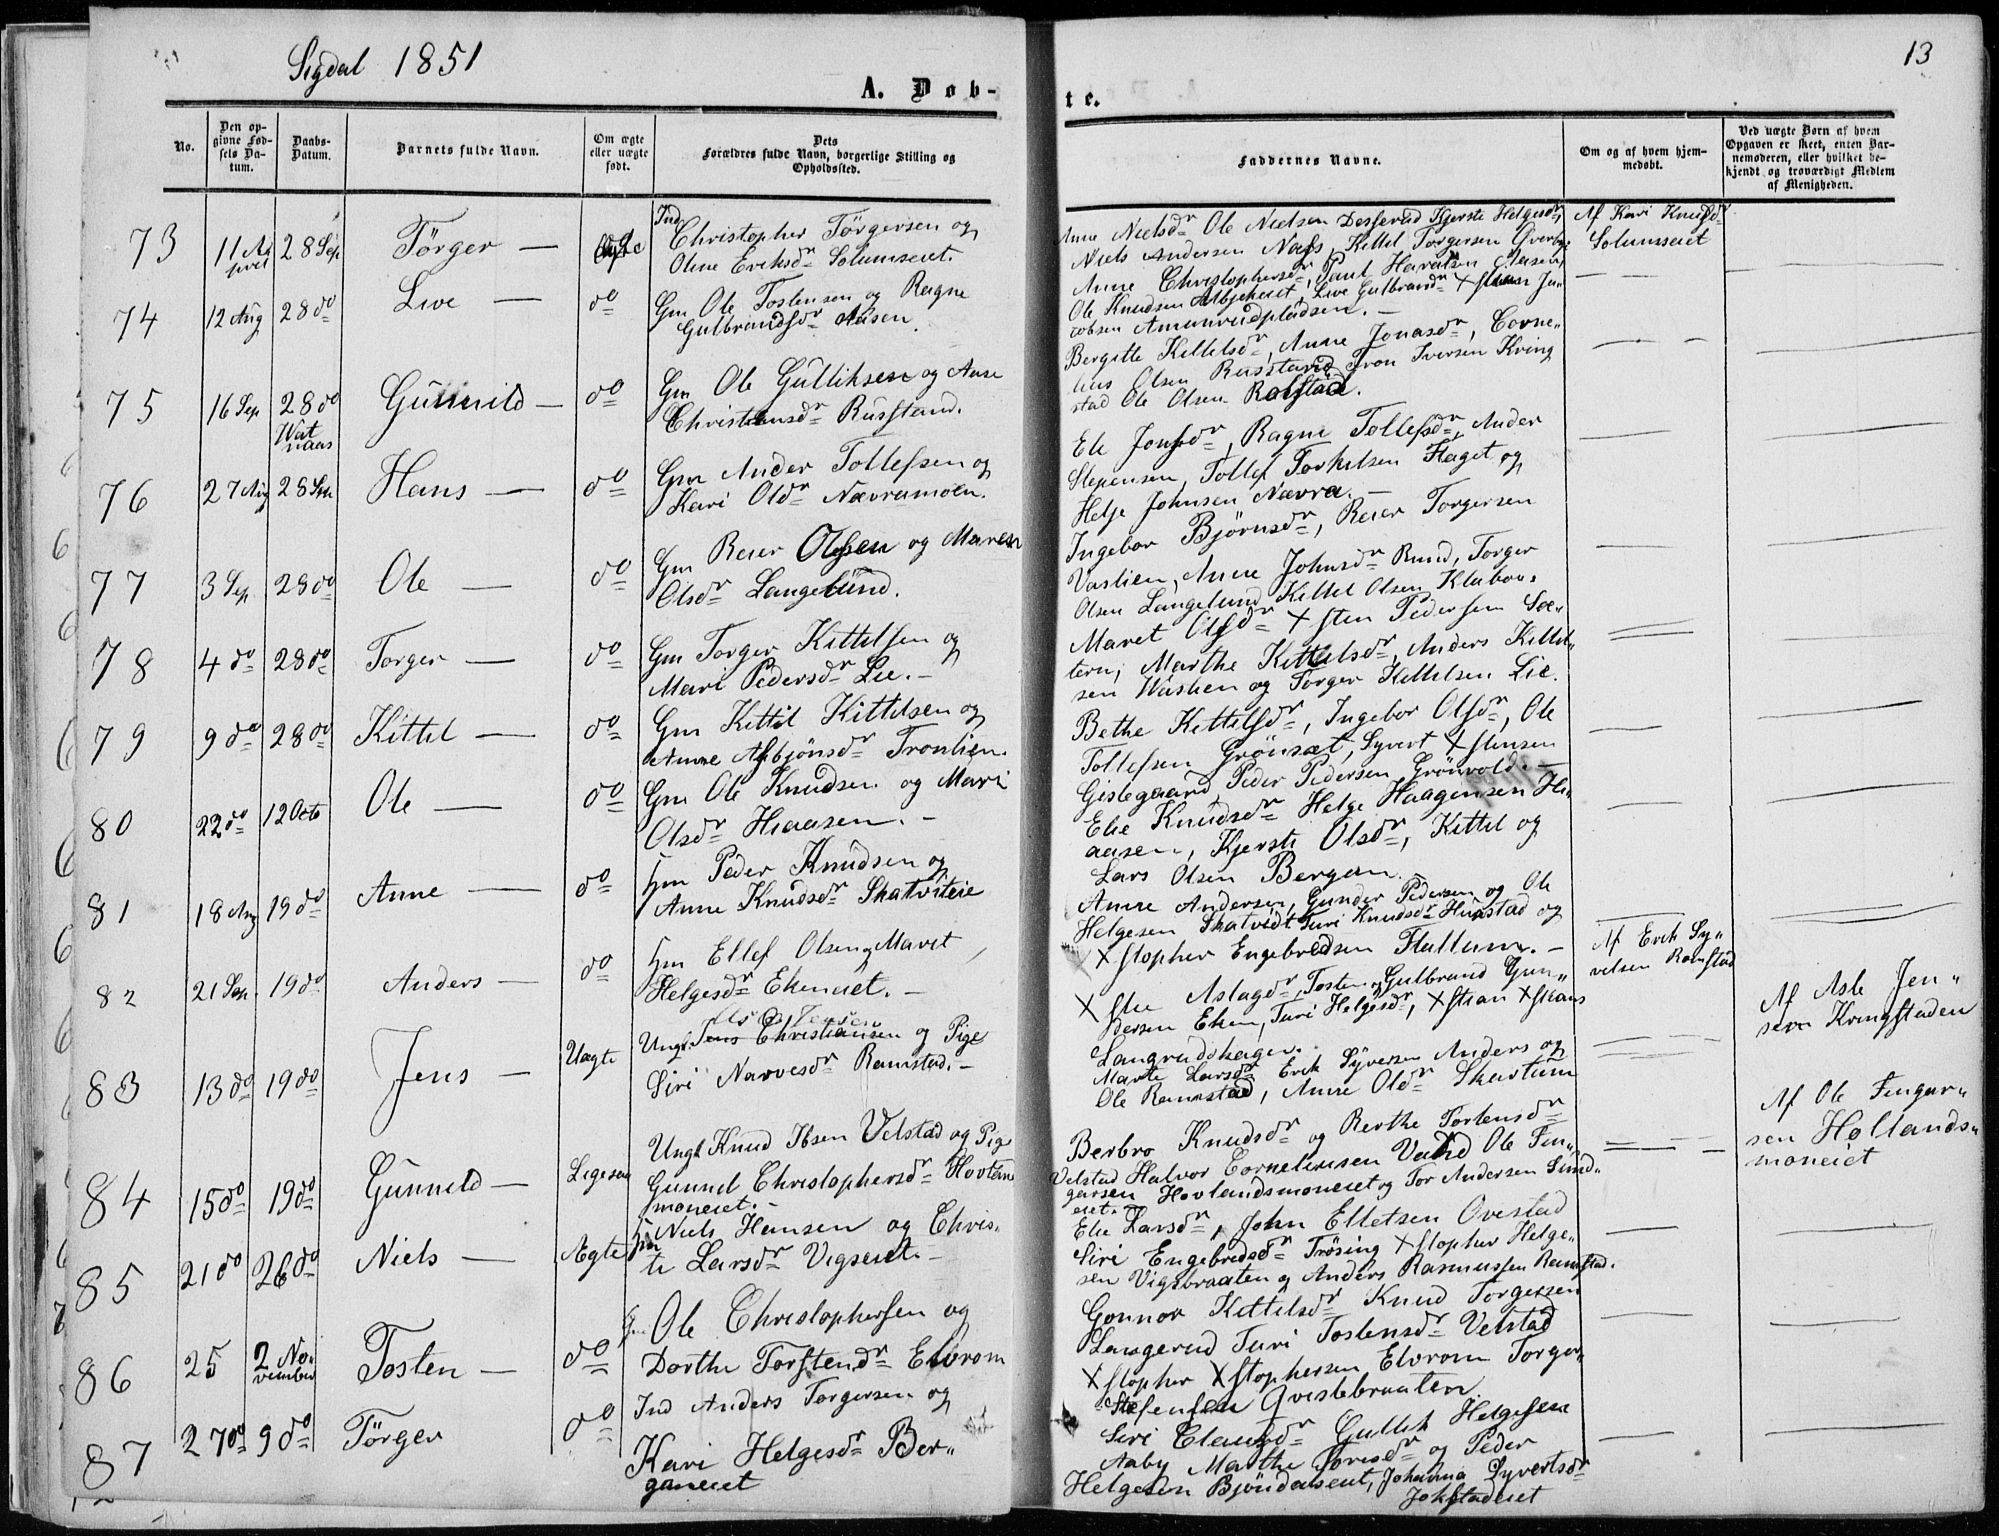 Sigdal 1851
A. Døb-
No.
Den op-
givne Fød-
sels Da-
tum.
Daabs-
Datum.
Barnets fulde Navn.
Om ægte
eller uægte
født.
Dets
Forældres fulde Navn, borgerlige Stilling og
Opholdssted.
73 11 April 28 Sep Törger —
Ind Christopher Törgersen og
Oline Eriksdr Solumseiet.
74 12 Aug 28 do Live — do
Gm Ole Tostensen og Ragne
Gulbrandsdr Aasen.
75 16 Sep 28 do Gunnild — do
Gm Ole Gulliksen og Anne
Christensdr Rustand.
76 27 Aug 28 Sep Hans — do
Gm Ander Tollefsen og
Kari Olsdr Nævramoen.
77 3 Sep 28 do Ole — do
Gm Reier Olsen og Maren
Olsdr Langelund.
78 4 do 28 do Torger — do
Gm Torger Kittelsen og
Mari Pedersdr Lie. –
79 9 do 28 do Kittel — do
Gm Kittil Kittelsen og
Anne Asbjönsdr Tronlien.
80 22 do 12 Octo Ole — do
Gm Ole Knudsen og Mari
Olsdr Hiaasen. –
81 18 Aug 19 do Anne — do
Gm Peder Knudsen og
Anne Knudsdr Skatvteie
82 21 Sep. 19 do Anders — do
Gm Ellef Olsen og Marit
Helgesdr Ekeneiet. –
83 13 do 19 do Jens — Uægte
Ungk Jens Christiansen og Pige
Siri Narvesdr Ramstad. –
84 15 do 19 do Gunnild — Ligesaa
Ungk Knud Ibsen Velstad og Pige
Gunnil Christophersdr Hovlens
moneiet. –
85 21 do 26 do Niels — Ægte
Gm Niels Hansen og Chris-
ti Larsdr Vigseiet. –
86 25 2 November Tosten — do
Gm Ole Christophersen og
Dorthe Torstendr Elvrom
87 27 do 9 do Törger do
Ind Anders Torgersen og
Kari Helgesdr Ber-
ganeiet
13
te.
Faddernes Navne.
Om og af hvem hjem-
medøbt.
Ved uægte Børn af hvem
Opgaven er skeet, enten Bar-
nemoderen, eller hvilket be-
kjendt og troværdigt Medlem
af Menigheden.
Anne Nielsdr Ole Nielsen Kjersti Helgesdr
Niels Andersen Næss, Kittel Torgersen
Af Kari Knudsdr
Solumseiet
Anne Christophersdr, Paul
Ole Knudsen Live Gulbrandsdr Xstian Ja-
cobsen Amunrudpladsen. –
Bergitte Kittelsdr, Anne Jonasdr, Corne-
lius Olsen Russtand Tron Iversen Kring
stad Ole Olsen Rolfstad.
Eli Jonsdr, Ragne Tollefsdr, Ander
Stepensen, Tollef Torkilsen Haget og
Helje Johnsen Nævra. –
Ingebor Björnsdr, Reier Torgersen
Vaslien, Anne Johnsdr Ruud, Torger
Olsen Langelund Kittel Olsen
Maret Olsdr Xsten Pedersen Sæ-
tern, Marthe Kittelsdr, Anders Kittel-
sen Waslien og Torger Kittelsen Lie.
Bethe Kittelsdr, Ingebor Olsdr, Ole
Tollefsen Grönset, Syvert Xstensen
Geslegaard Peder Pedersen Grönvold. –
Elie Knudsdr Helge Haagensen Hi-
aasen, Kjersti Olsdr, Kittel og
Lars Olsen Bergan.
Anne Andersen, Gunder Pedersen og Ole
Helgesen Skatvedt Turi Knudsdr og
Xstopher Engebredsen Flattum. –
Af Erik Sy-
velsen Ramstad
Xstie Aslagdr, Tosten og Gulbrand Gun-
dersen Eken, Turi Helgesdr, Xstian Xstians
Langrudshagen.
Af Asle Jen-
sen Kringstaden
Marte Larsdr Erik Syversen Anders og
Ole Ramstad, Anne Oldr Skartum
Berbro Knudsdr og Berthe Tortensdr
Velstad Halvor Cornelinsen Ole Fin-
garsen Hovlandsmoneiet og Tor Andersen Lund-
eiet.
Af Ole Fingar-
sen Hollands-
moneiet
Elie Larsdr, John Elletsen Ovestad
Siri Engebredsdr Trösing Xstopher Helge-
sen Vigsbraaten og Anders Rasmussen Ramstad.
Gonnor Kittelsdr Knud Torgersen
Langerud Turi Tostensdr Velstad
Xstopher Xstophersen Elvrom Torger
Stefensen Qvislebraaten
Siri Clausdr Gullik Helgesen
Aaby Marthe og Peder
Helgesen Björndaseiet, Johanna Syvertsdr
Jokstadeiet